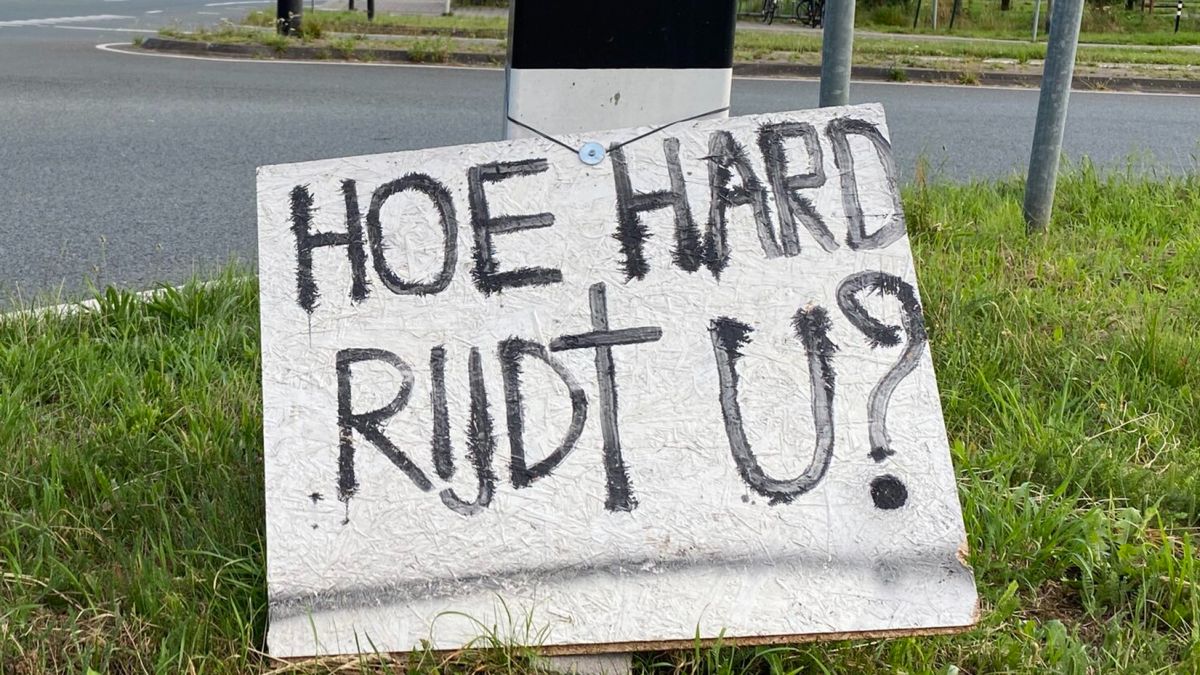 HOE HARD
RIJDT U?